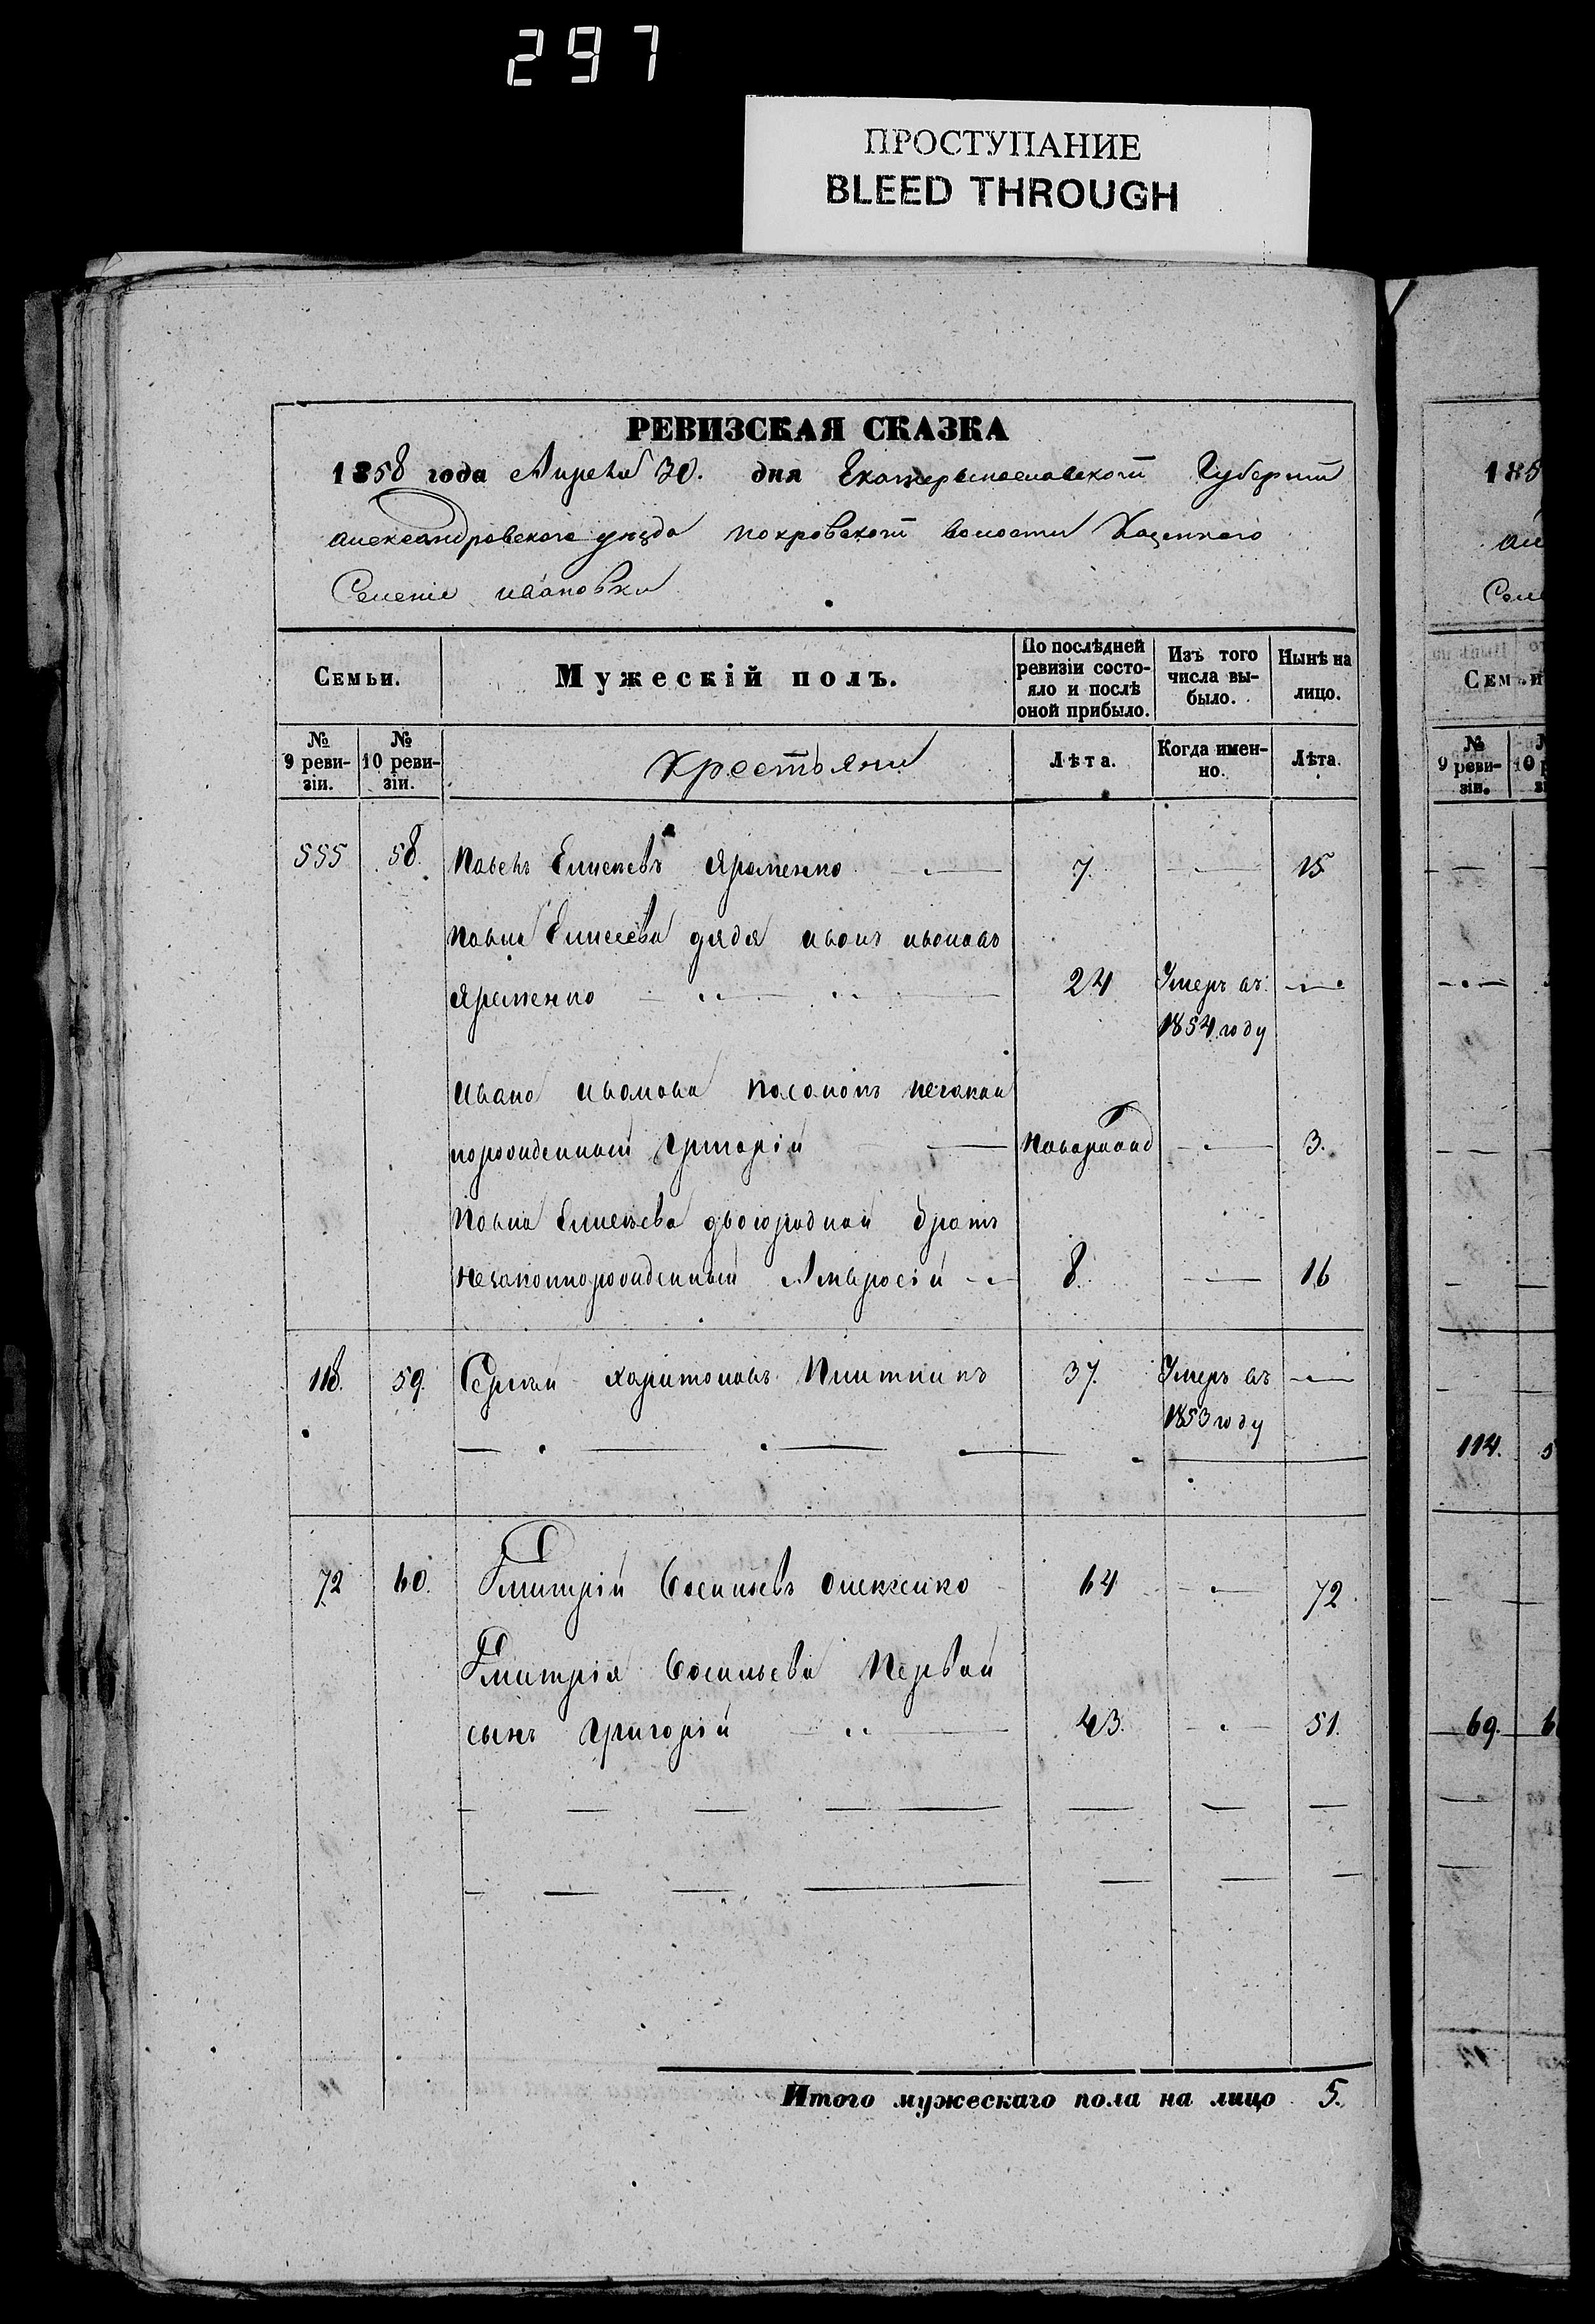 297
ПРОСТУПАНИЕ
BLEED THROUGH
РЕВИЗСКАЯ СКАЗКА
1858 года Апреля 30. дня Екатерынославской Губернии
александровского уезда покровской волости Казенного
Селения ивановки
Семьи.
Мужескій полъ.
По послѣдней ревизіи состояло и послѣ оной прибыло.
Изъ того числа выбыло.
Нынѣ на лицо.
№ 9 ревизіи.
№ 10 ревизіи.
Крестьяни
Лѣта.
Когда именно.
Лѣта.
555 58. Павелъ Елисеевъ Яременко 7. 15
Павла Елисеева дядя иванъ ивановъ
Яременко 24 Умеръ въ
1854 году
Ивана иванова незакон
порожденный Григорій 3.
Павла Елисеева двоюродный братъ
незаконнорожденный Амвросій 8. 16
118. 59. Сергей Харитоновъ 37. Умеръ въ
1853 году
72 60. Дмитрій Васильевъ Олексенко 64 72
Дмитрія Васильева Первый
сынъ Григорій 43. 51.
Итого мужескаго пола на лицо 5.
185
Семьи
№ 9 ревизіи.
114. 5
69. 6